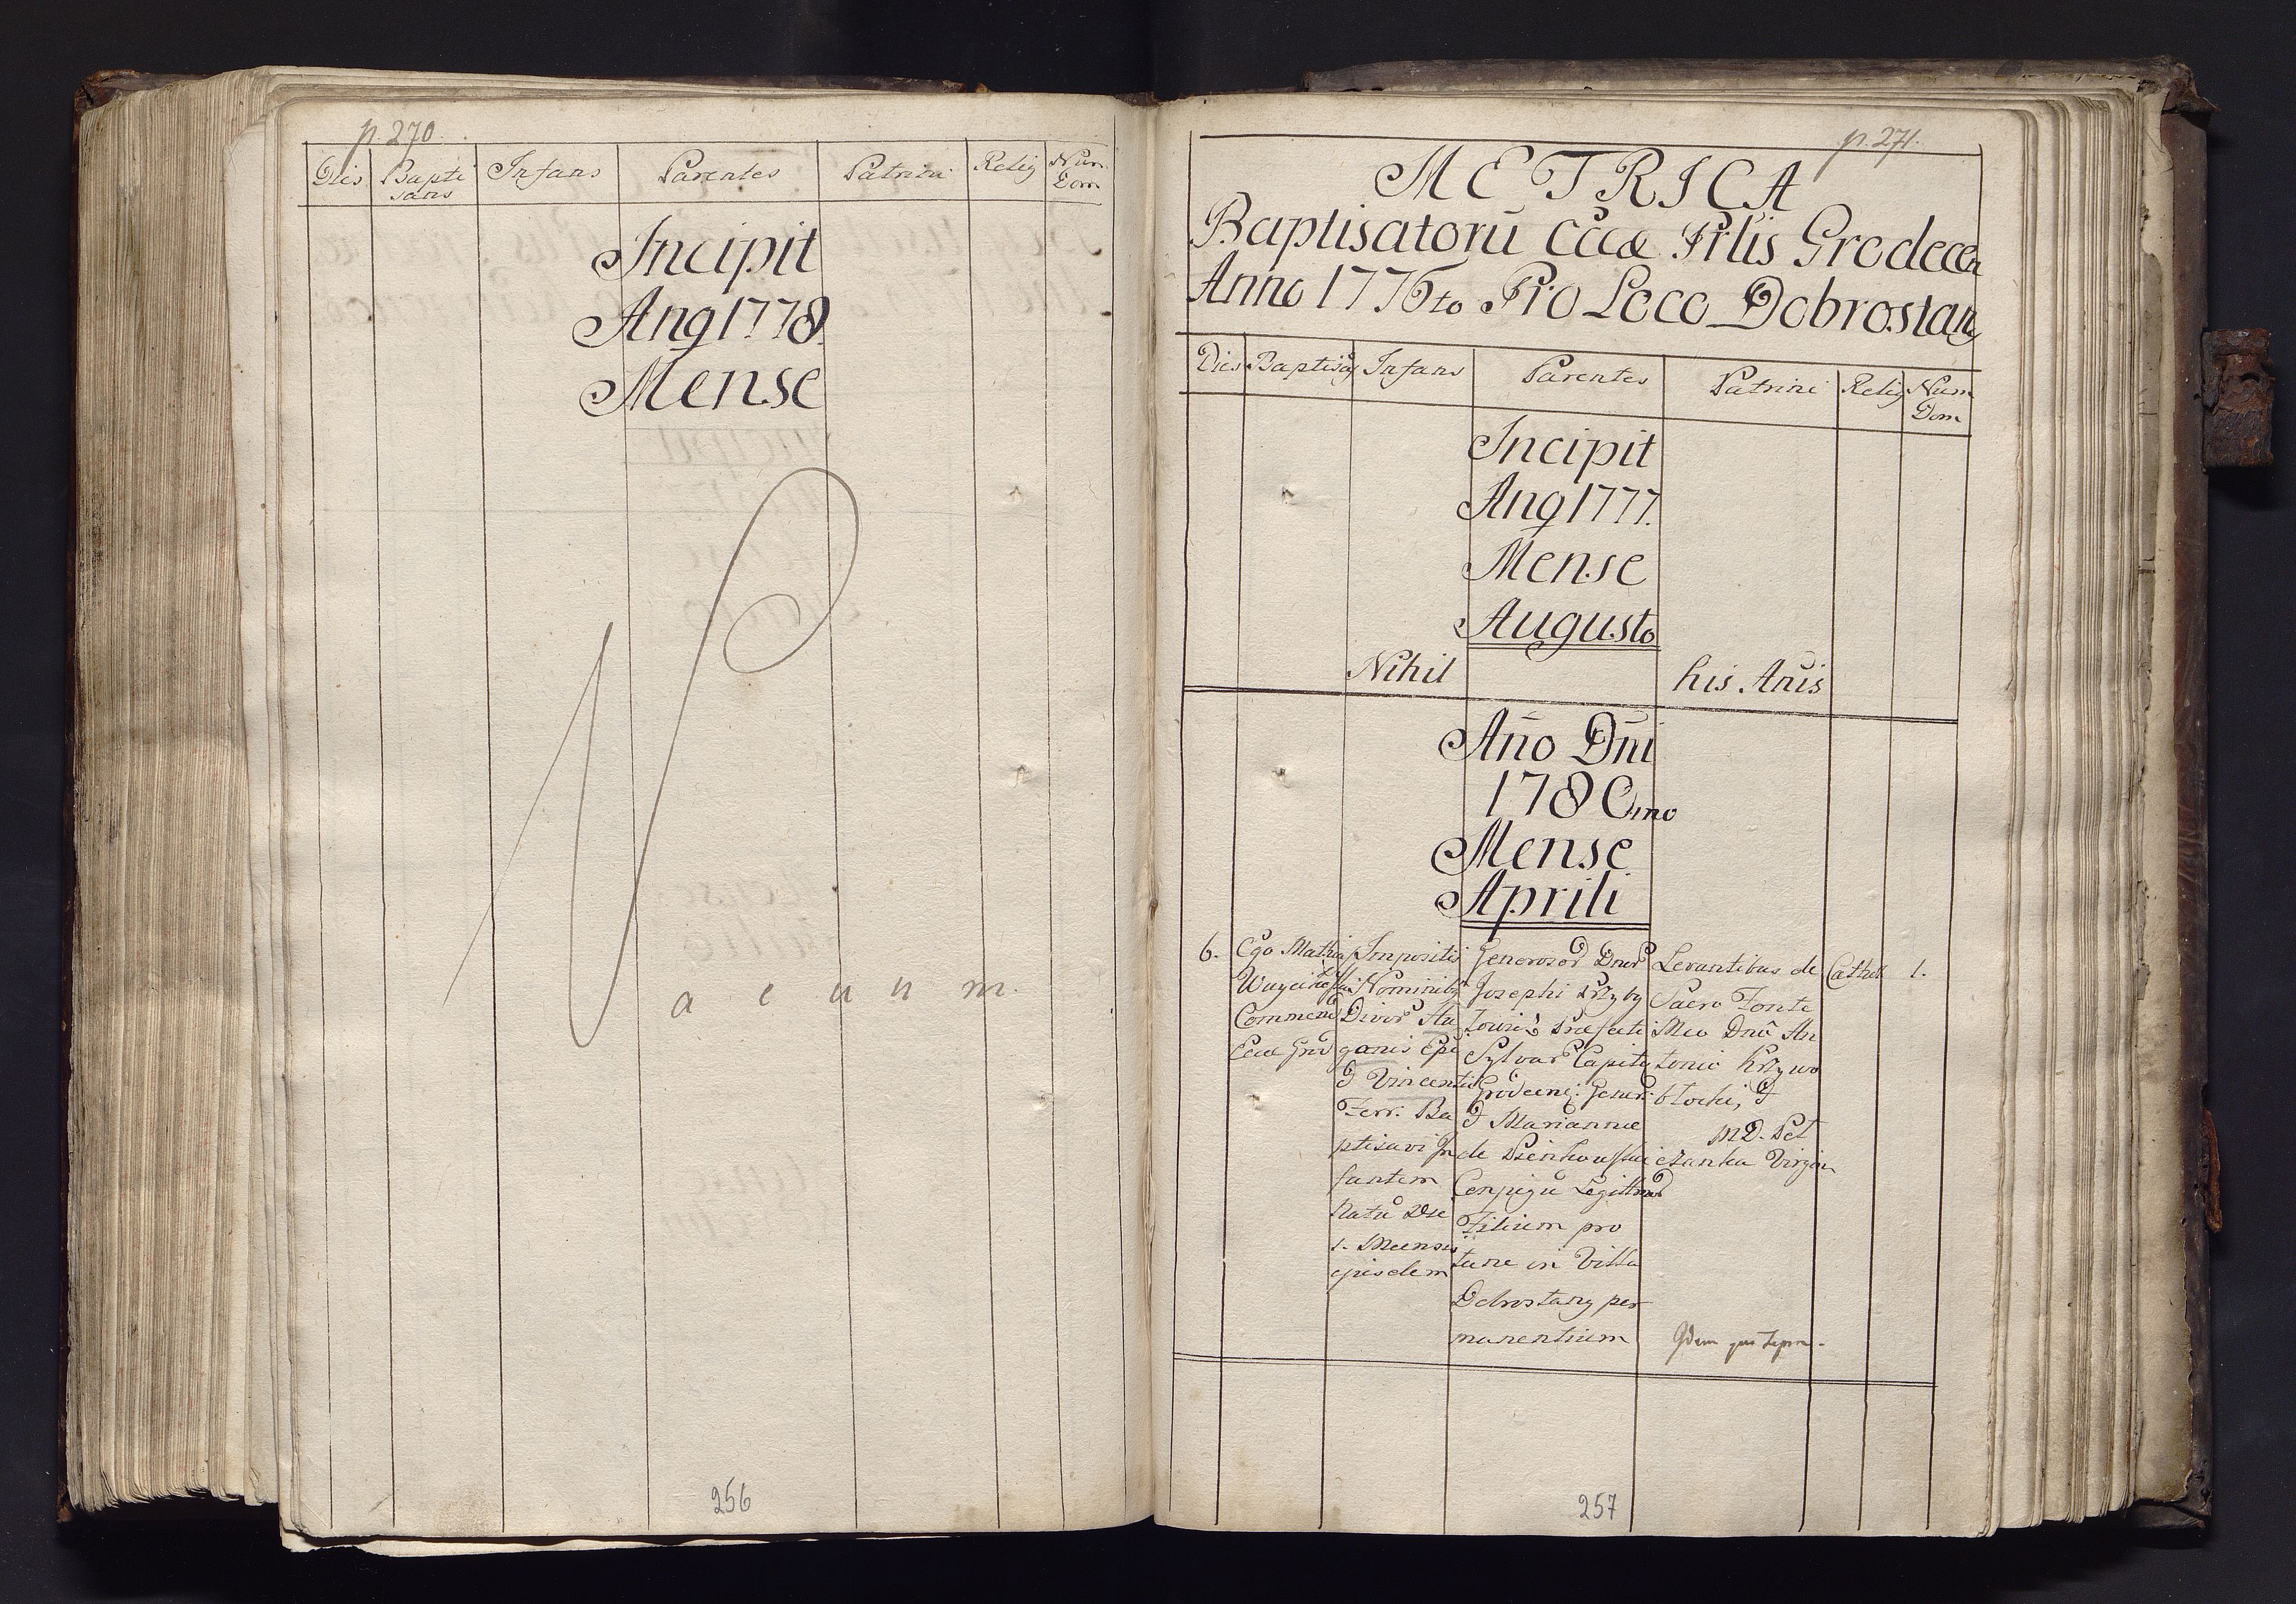 p. 270.
Dies Bapti Infans Parentes Patrini Relig Num
sans Dom
Incipit
Ang 1778
Mense
V a c u u m.
256
p. 271.
METRICA
Baptisatorū Ccæ Prlis Grodecen
Anno 1776to Pro Loco Dobrostany
Dies Baptisās Infans Parentes Patrini Relig Num
Dom
Incipit
Ang 1777.
Mense
Augusto
Nihil his Anis
Año Dni
1780mo
Mense
Aprili
6.
Ego Mathia
Commend
Impositis
Nominibq
Divor Au
gonis Epi
& Vincentii
Ferr. Ba
ptisavi In
fantem
Natū Die
1. Mensis
ejusdem
Generosor Dnor
Josephi Przyby
Præfecti
Sylvar Capit
Grodecen:
& Mariannæ
de
Conjugū Legittimor
Filium pro
tunc in Villa
Dobrostany per
manentium
Levantibus de
Sacro Fonte
Mco Dnō An
tonio Krzywo
błocki, &
MD. Pel
czanka Virgin
Cathol
1.
257